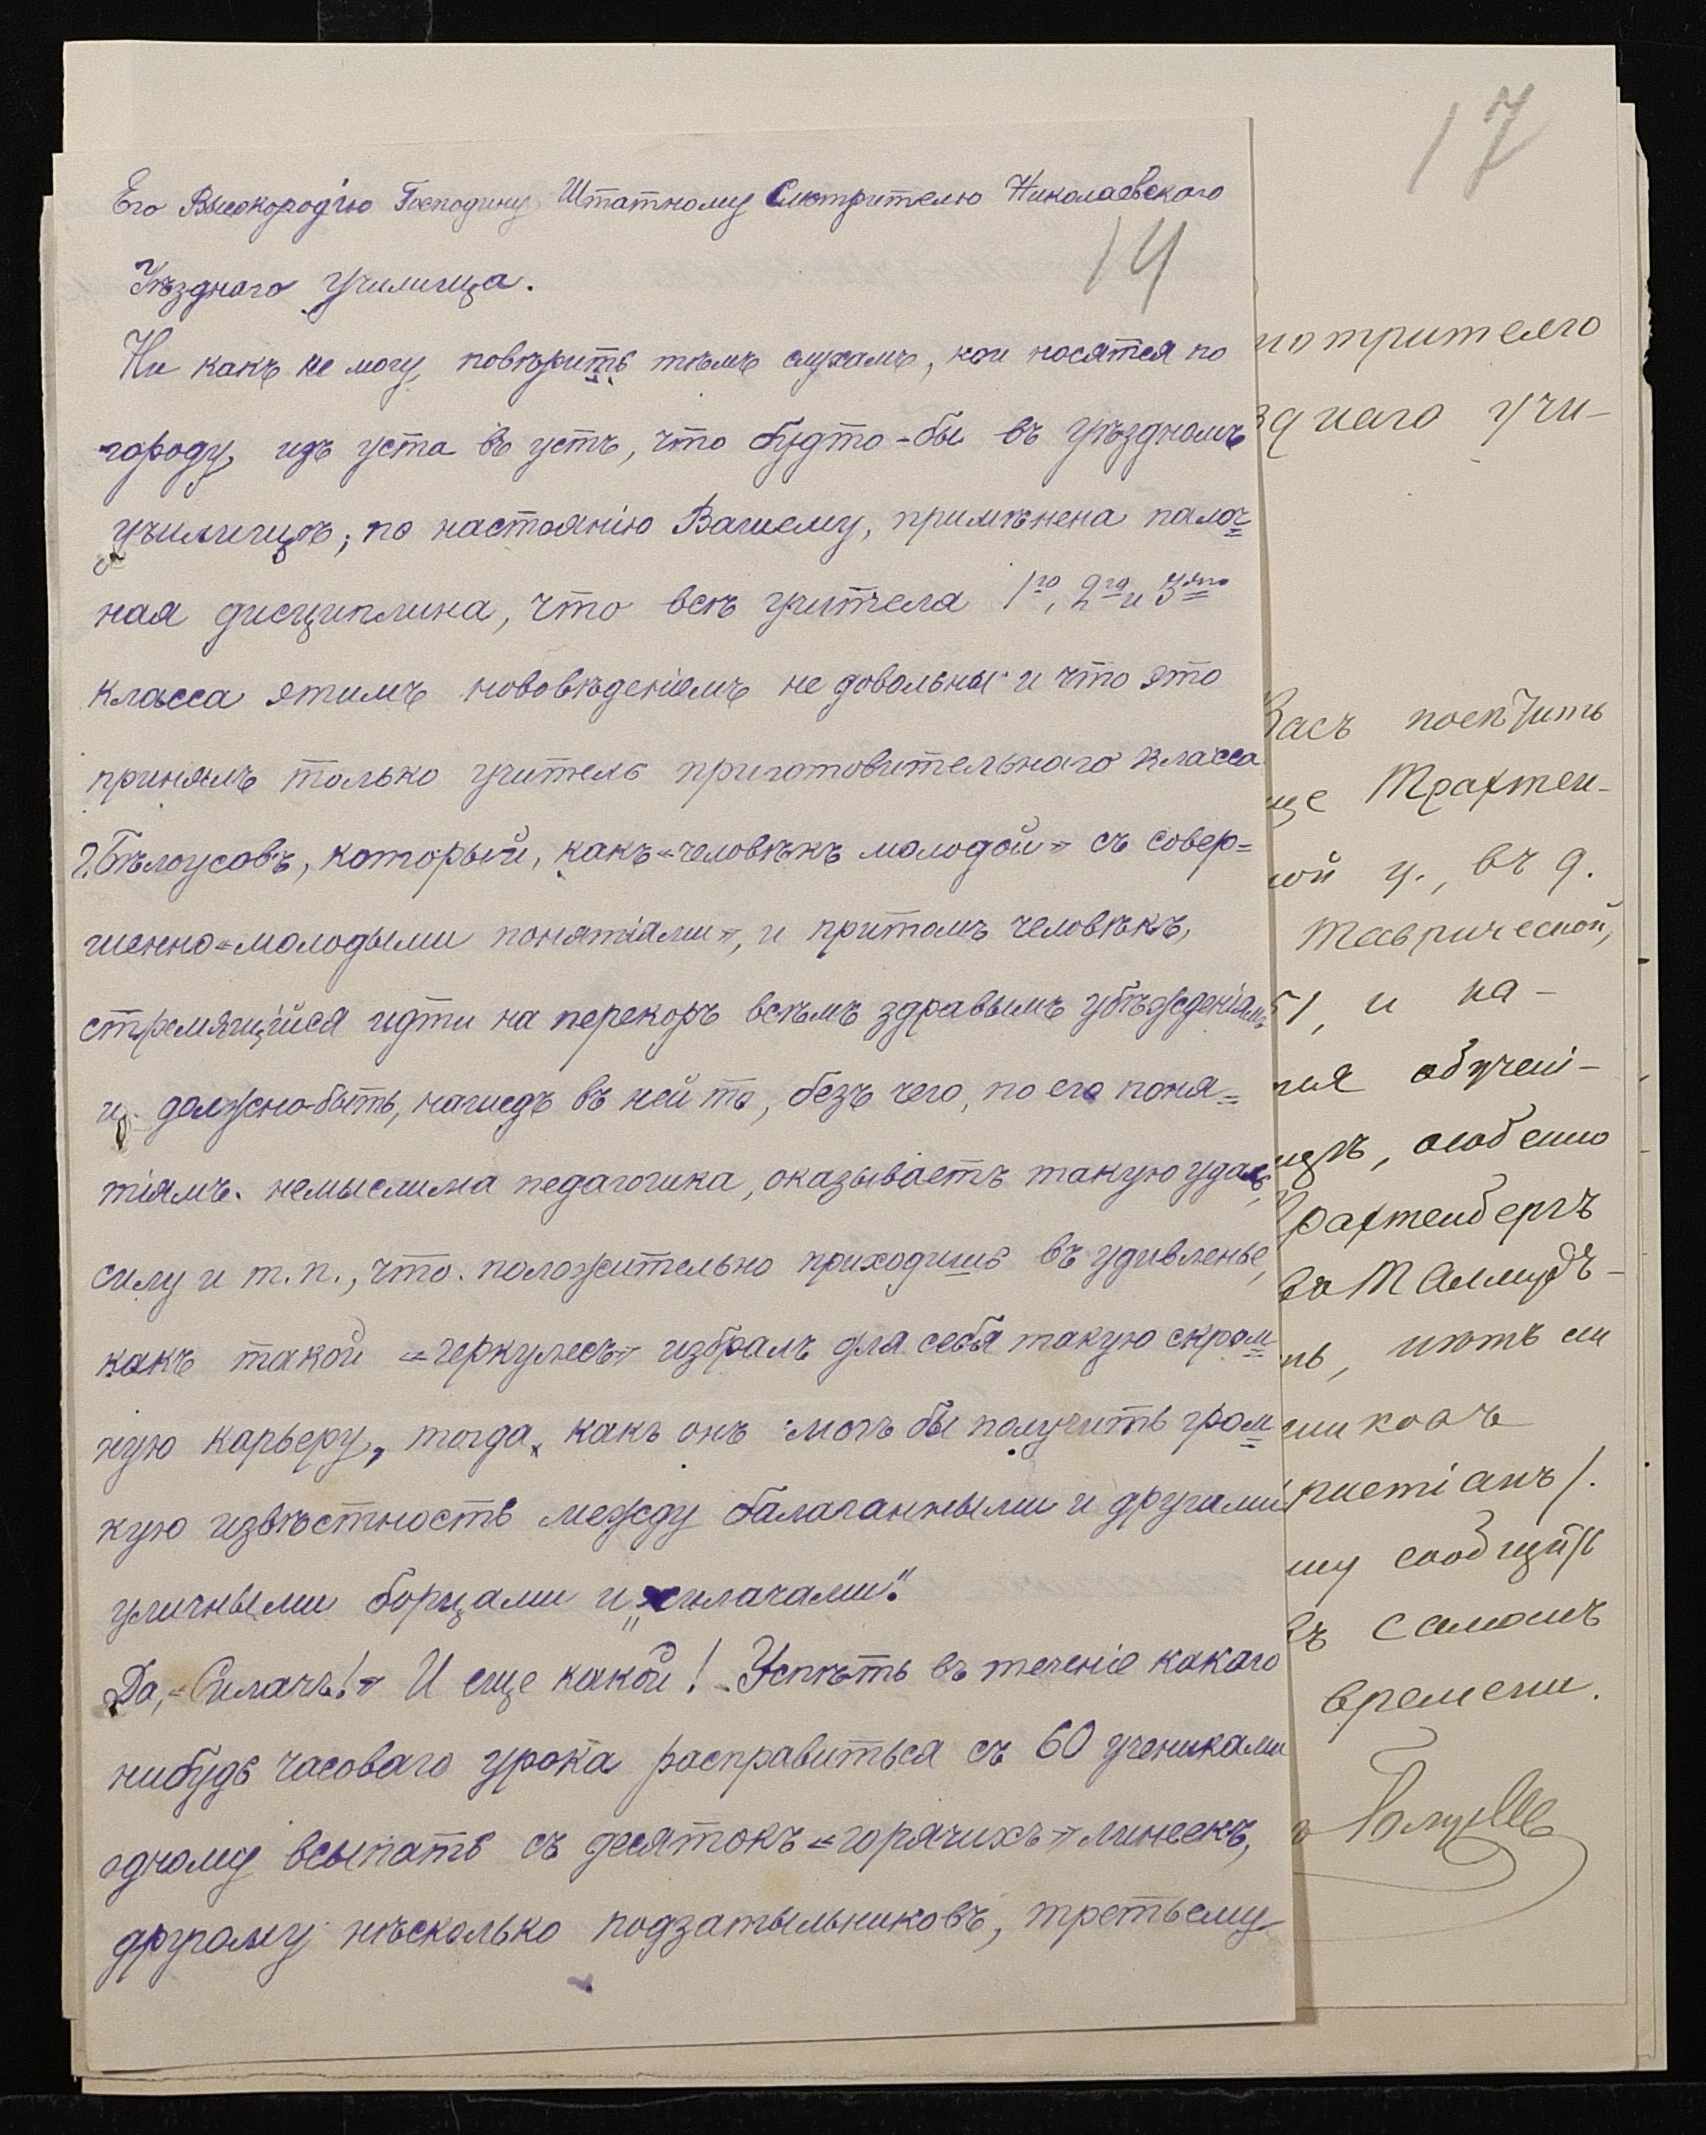 17
Его Высокородію Господину Штатному Смотрителю Николаевского
14
Уѣздного училища.
Ни какъ не могу повѣрить тѣмъ слухамъ, кои носятся по
городу изъ уста въ устъ, что будто-бы въ уѣздномъ
училищѣ, по настоянію Вашему, примѣнена палоч=
ная дисциплина, что всѣ учителя 1го, 2го и 3яго
класса этимъ нововѣденіемъ не довольны и что это
принялъ только учитель приготовительнаго класса
г. Бѣлоусовъ, который, какъ «человѣкъ молодой» съ совер=
шенно «молодыми понятіями», и притомъ человѣкъ,
стремящійся идти на перекоръ всѣмъ здравымъ убѣжденіямъ
и, должно-быть, нашедъ въ ней то, безъ чего, по его поня=
тіямъ. немыслима педагогика, оказываетъ такую удаль,
силу и т.п., что положительно приходишь въ удивленье,
какъ такой «геркулесъ» избралъ для себя такую скром=
ную карьеру, тогда, какъ онъ могъ бы получить гром=
кую извѣстность между балаганными и другими
уличными борцами и „силачами“.
Да, «Силачъ!» И еще какой! Успѣть въ теченіе какаго
нибудь часоваго урока расправиться съ 60 учениками
одному всыпать съ десятокъ «горячихъ» линеекъ,
другому нѣсколько подзатыльниковъ, третьему
мотрителю
зднаго учи-
Васъ посѣтить
ще Трахтен-
ой у., въ д.
Таврической,
и на-
ія обучені-
ицѣ, особенно
Трахтенбергъ
въ Талмудъ-
нѣтъ ли
никовъ
ристіанъ).
му сообщить
въ самомъ
времени.